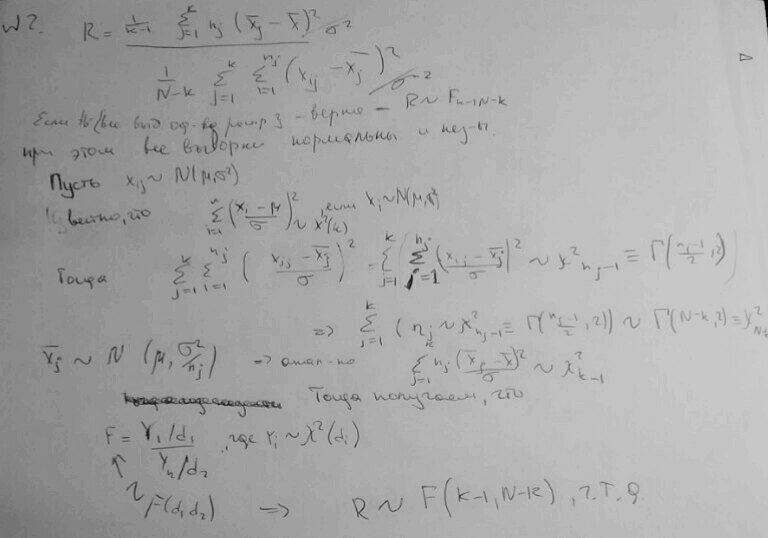 №2. R = \frac{\frac{1}{k-1} \sum_{j=1}^{k} n_j (\overline{x}_j - \overline{x})^2 / σ^2}{\frac{1}{N-k} \sum_{j=1}^{k} \sum_{i=1}^{n_j} (x_{ij} - \overline{x}_j)^2 / σ^2}
Если H_0 {все выб - верно - R ~ F_{k-1 N-k}
при этом все выборки нормальны и нез-ы.
Пусть x_{ij} ~ N(μ, σ^2)
Известно, что \sum_{i=1}^{n} (\frac{x_i - μ}{σ})^2 ~ χ^2(n), если x_i ~ N(μ, σ^2)
Тогда \sum_{j=1}^{k} \sum_{i=1}^{n_j} (\frac{x_{ij} - \overline{x}_j}{σ})^2 = \sum_{j=1}^{k} (\sum_{j=1}^{n_j} (\frac{x_{ij} - \overline{x}_j}{σ})^2 ~ χ^2_{n_j-1} ≡ Γ(\frac{n_j-1}{2}, 2))
=> \sum_{j=1}^{k} (n_j ~ χ^2_{n_j-1} ≡ Γ(\frac{n_j-1}{2}, 2)) ~ Γ(N-k, 2) = χ^2_{N-k}
\overline{x}_j ~ N(μ, \frac{σ^2}{n_j}) => анал-но \sum_{j=1}^{k} n_j (\frac{\overline{x}_j - \overline{x}}{σ})^2 ~ χ^2_{k-1}
Тогда получаем, что
F = \frac{Y_1/d_1}{Y_2/d_2}, где Y_i ~ χ^2(d_i)
~ F(d_1 d_2) => R ~ F(k-1, N-k), ч.т.д.